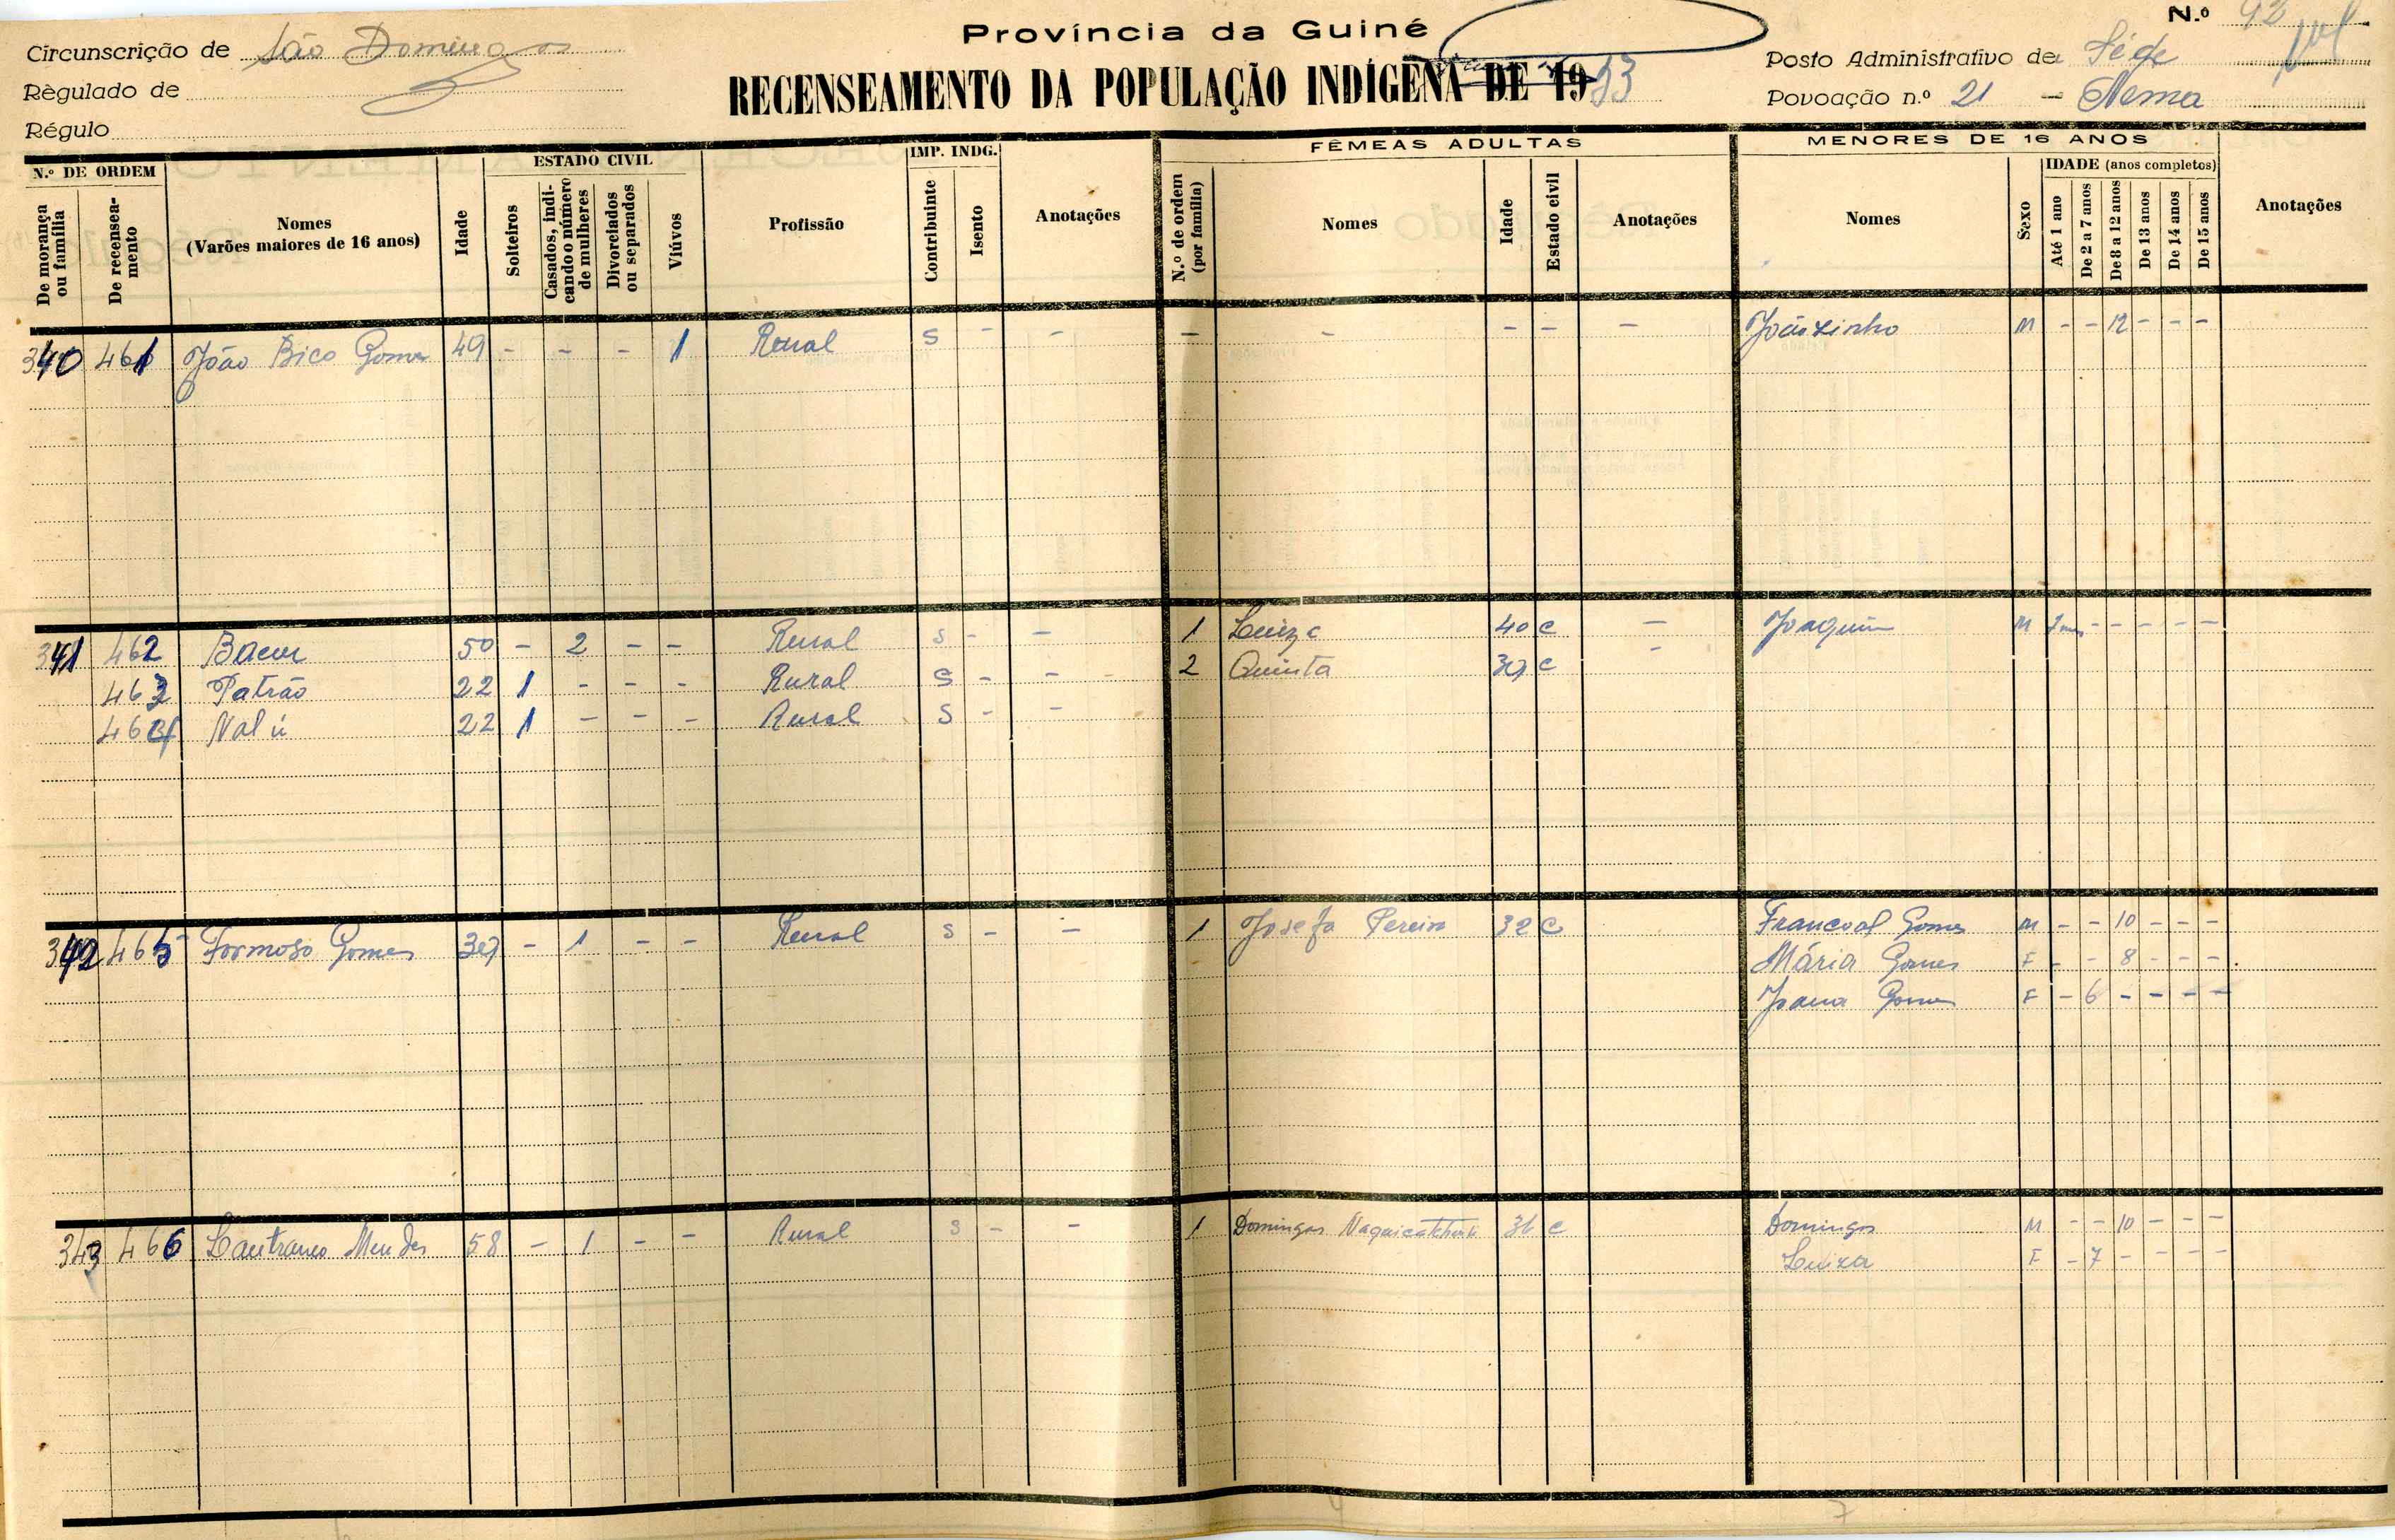 Província da Guiné
N.º
Circunscrição de São Domingos
Posto Administrativo de Séde
RECENSEAMENTO DA POPULAÇÃO INDÍGENA DE 1953
Règulado de
Povoação n.º 21 - Nema
Régulo
N.º DE ORDEM
De morança ou família
De recensea-mento
Nomes
(Varões maiores de 16 anos)
Idade
ESTADO CIVIL
Solteiros
Casados, indi-cando o número de mulheres
Divorciados ou separados
Viúvos
Profissão
IMP. INDG.
Contribuinte
Isento
Anotações
FÊMEAS ADULTAS
N.º de ordem (por família)
Nomes
Idade
Estado civil
Anotações
MENORES DE 16 ANOS
Nomes
Sexo
IDADE (anos completos)
Até 1 ano
De 2 a 7 anos
De 8 a 12 anos
De 13 anos
De 14 anos
De 15 anos
Anotações
340 461 João Bico Gomes 49 - - - 1 Rural S - - - - - - - Joãozinho M - - 12 - - -
341 462 Bacur 50 - 2 - - Rural S - - 1 Luiza 40 C - Joaquim M - - - - -
463 Patrão 22 1 - - - Rural S - - 2 Quinta 37 C -
464 Nalú 22 1 - - - Rural S - -
342 465 Formoso Gomes 37 - 1 - - Rural S - - 1 Josefa Pereira 32 C Francoal Gomes M - - 10 - - -
Mária Gomes F - - 8 - - -
Joana Gomes F - 6 - - - -
343 466 Mendes 58 - 1 - - Rural S - - 1 Domingas 36 C Domingos M - - 10 - - -
Luiza F - 7 - - - -